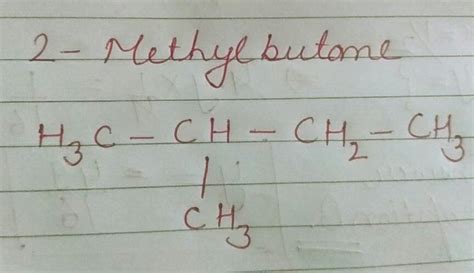 2 - Methylbutane
H₃C - CH - CH₂ - CH₃
|
CH₃